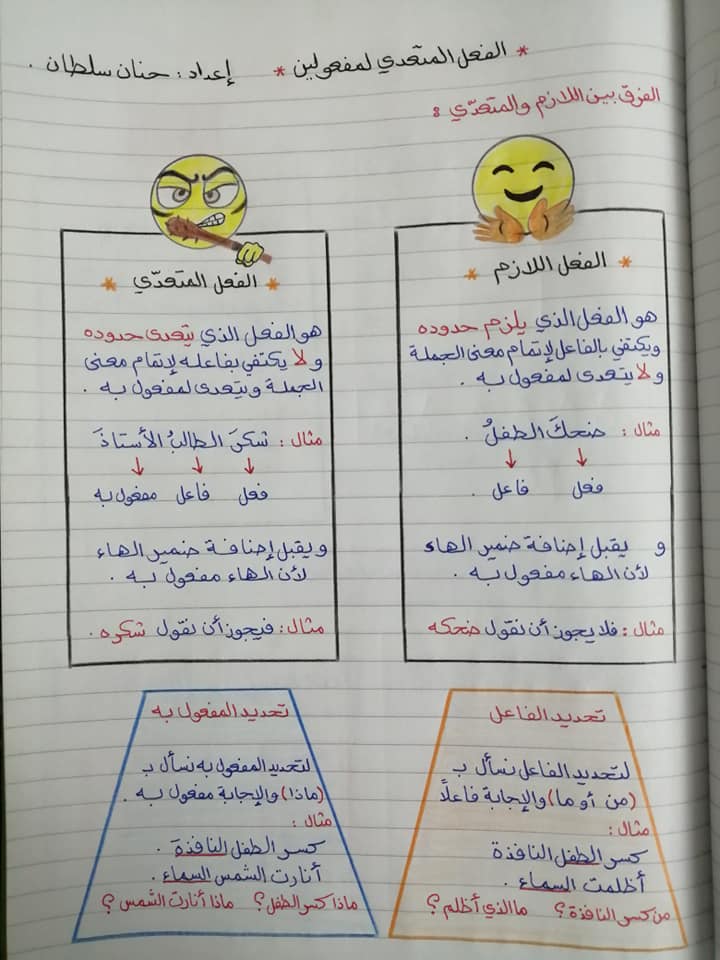 * الفعل المتعدي لمفعولين * إعداد : حنان سلطان .
الفرق بين اللازم والمتعدّي :
* الفعل اللازم *
هو الفعل الذي يلزم حدوده
ويكتفي بالفاعل لإتمام معنى الجملة
ولا يتعدى لمفعول به .
مثال : ضحكَ الطفلُ .
فعل فاعل .
و يقبل إضافة ضمير الهاء
لأن الهاء مفعول به .
مثال : فلا يجوز أن نقول ضحكه
* الفعل المتعدّي *
هو الفعل الذي يتعدى حدوده
ولا يكتفي بفاعله لإتمام معنى
الجملة ويتعدى لمفعول به .
مثال : شكرَ الطالبُ الأستاذَ
فعل فاعل مفعول به
ويقبل إضافة ضمير الهاء
لأن الهاء مفعول به .
مثال : فيجوز أن نقول شكره .
تحديد الفاعل
لتحديد الفاعل نسأل بـ
(من أو ما) والإجابة فاعلاً
مثال :
كسر الطفل النافذة
أظلمت السماء .
من كسر النافذة ؟ ما الذي أظلم ؟
تحديد المفعول به
لتحديد المفعول به نسأل بـ
(ماذا) والإجابة مفعول به .
مثال :
كسر الطفل النافذة .
أنارت الشمس السماء .
ماذا كسر الطفل ؟ ماذا أنارت الشمس ؟